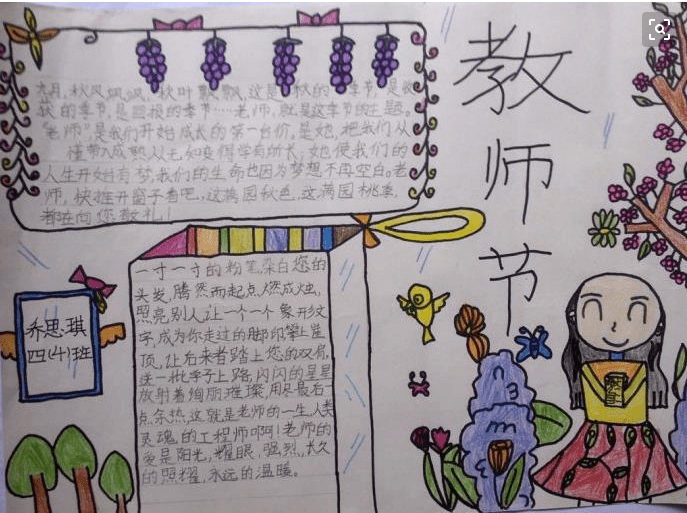 教师节
九月,秋风飒飒,秋叶飘飘,这是秋的季节,是收
获的季节,是回报的季节……老师,就是这季节的主题。
"老师"是我们开始成长的第一台阶,是她,把我们从
懂带入成熟从无知变得学有所长;她使我们的
人生开始有梦,我们的生命也因为梦想不再空白。老
师,快推开窗子看吧,这满园秋色,这满园桃李,
都在向您敬礼!
一寸一寸的粉笔,染白您的
头发,腾然而起点燃成烛,
照亮别人让一个一个象形文
字,成为你走过的脚印攀上崖
顶,让后来者踏上您的双肩,
送一批学子上路,闪闪的星星
放射着绚丽璀璨,用尽最后一
点余热,这就是老师的一生,人类
灵魂的工程师啊!老师的
爱是阳光,耀眼,强烈,长久
的照耀,永远的温暖。
乔思琪
四(4)班